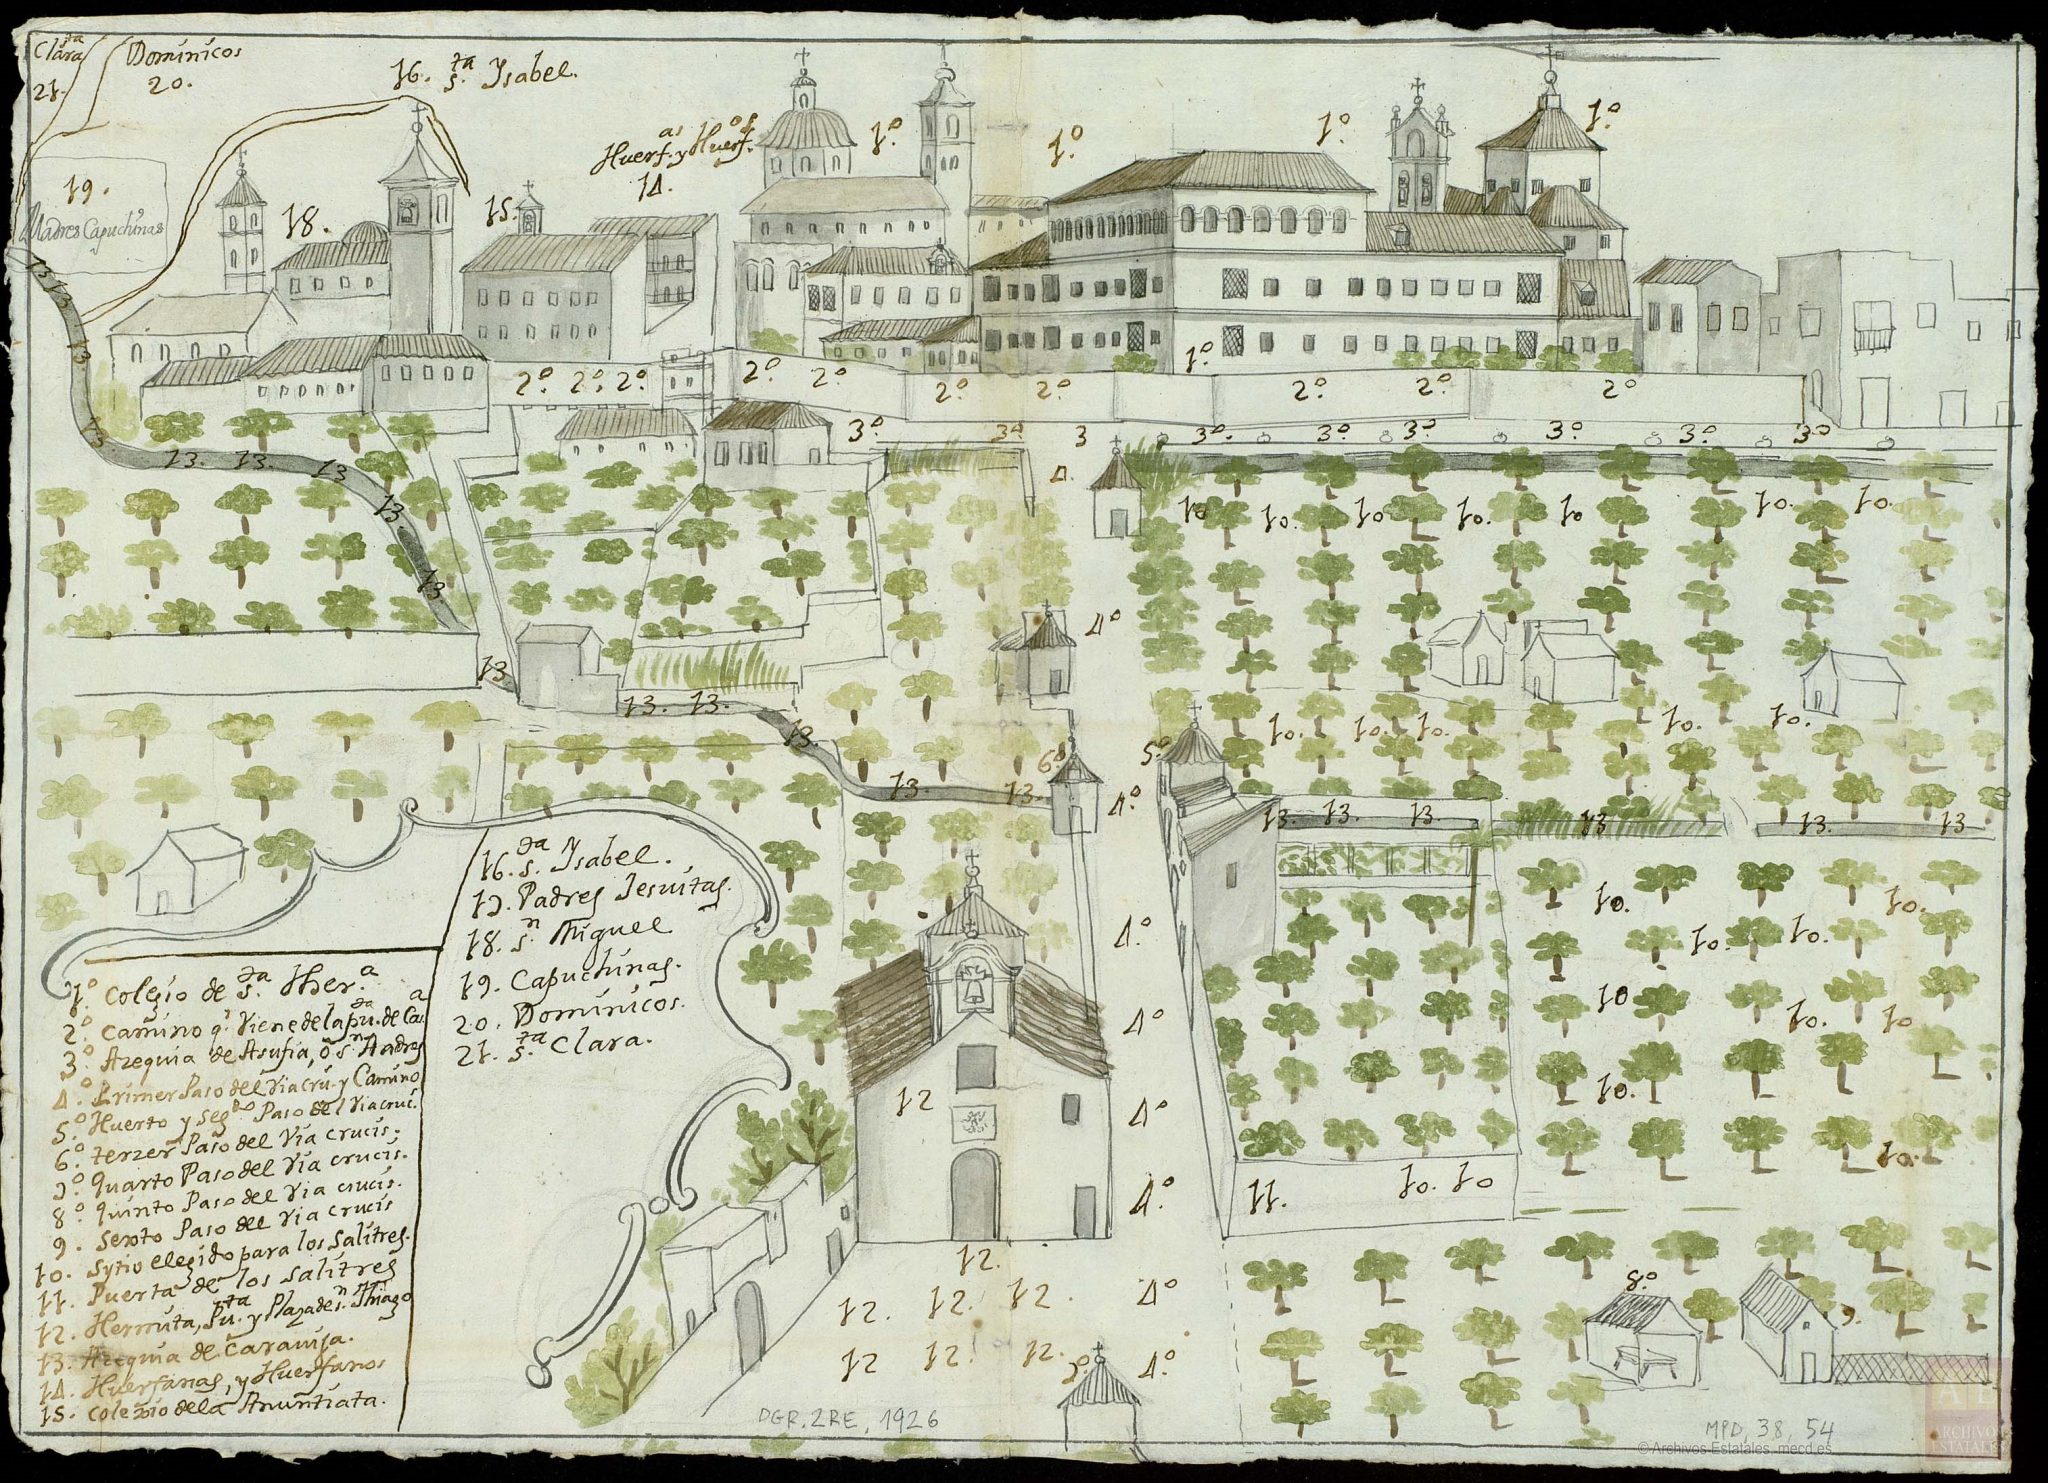 Clara
21.
Dominicos
20.
16. s.ta Ysabel.
19.
Madres Capuchinas
18.
15.
Huerf.as y Huerf.os
14.
1º
1º.
1º.
1º.
1º.
2º. 2º. 2º. 2º. 2º. 2º 2º 2º. 2º. 2º
3º. 3º 3 3º. 3º. 3º. 3º. 3º. 3º
4.
10 10. 10 10. 10 10. 10.
13 13 13 13
13. 13. 13 13 13
13
4º
13. 13. 13
10. 10. 10. 10. 10.
6º 5º
13. 13. 4º.
13. 13. 13 13 13. 13
10. 10. 10. 10.
4º.
10 10. 10
4º
12
4º 10.
10.
4º. 11. 10. 10
12.
12. 12. 12. 4º
12 12. 12. 7º. 4º.
8º 9.
16. s.ta Ysabel.
17. Padres Jesuitas.
18. s.n Miguel
19. Capuchinas.
20. Dominicos.
21. s.ta Clara.
1º. Colegio de s.ta Ther.a
2º. Camino q.e viene de la pu.ta de Ca.a
3º. Azequia de Asufia, ô s.n Andres
4º. Primer Paso del Via cru. y Camino
5.º Huerto y seg.do Paso del Via cruc.
6.º terzer Paso del Via crucis.
7.º quarto Paso del Via crucis.
8.º quinto Paso del Via crucis.
9. Sexto Paso del Via crucis
10. Sytio elegido para los Salitres.
11. Puerta de los Salitres
12. Hermita, Pu.ta y Plaza de s.n Thiago
13. Azequia de Caravija.
14. Huerfanas, y Huerfanos
15. colegio de la Anuntiata.
DGR. 2RE, 1926
MPD, 38, 54
© Archivos Estatales, mecd.es
AE
ARCHIVOS
ESTATALES